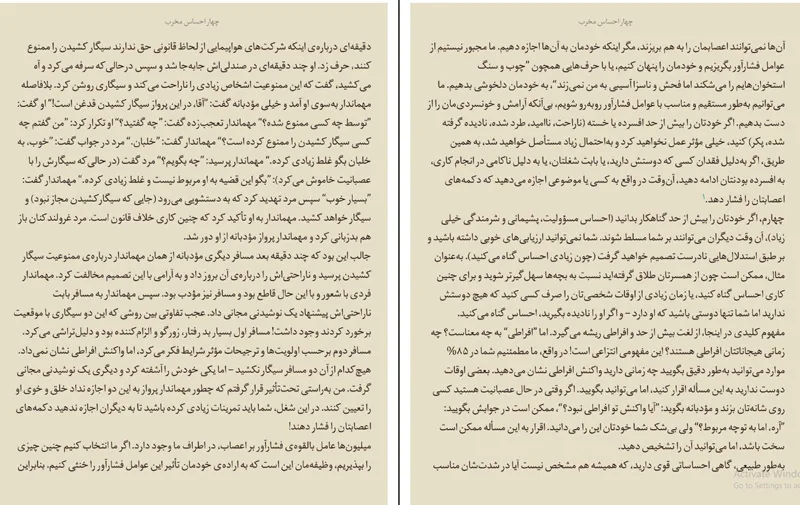 چهار احساس مخرب
آن‌ها نمی‌توانند اعصابمان را به هم بریزند، مگر اینکه خودمان به آن‌ها اجازه دهیم. ما مجبور نیستیم از
عوامل فشارآور بگریزیم و خودمان را پنهان کنیم، یا با حرف‌هایی همچون "چوب و سنگ
استخوان‌هایم را می‌شکند اما فحش و ناسزا آسیبی به من نمی‌زند"، به خودمان دلخوشی بدهیم. ما
می‌توانیم به‌طور مستقیم و مناسب با عوامل فشارآور روبه‌رو شویم، بی‌آنکه آرامش و خونسردی‌مان را از
دست بدهیم. اگر خودتان را بیش از حد افسرده یا خسته (ناراحت، ناامید، طرد شده، نادیده گرفته
شده، پکر) کنید، خیلی مؤثر عمل نخواهید کرد و به‌احتمال زیاد مستأصل خواهید شد، به همین
طریق، اگر به‌دلیل فقدان کسی که دوستش دارید، یا بابت شغلتان، یا به دلیل ناکامی در انجام کاری،
به افسرده بودنتان ادامه دهید، آن‌وقت در واقع به کسی یا موضوعی اجازه می‌دهید که دکمه‌های
اعصابتان را فشار دهد.۱
چهارم، اگر خودتان را بیش از حد گناهکار بدانید (احساس مسؤولیت، پشیمانی و شرمندگی خیلی
زیاد)، آن وقت دیگران می‌توانند بر شما مسلط شوند. شما نمی‌توانید ارزیابی‌های خوبی داشته باشید و
بر طبق استدلال‌هایی نادرست تصمیم خواهید گرفت (چون زیادی احساس گناه می‌کنید). به‌عنوان
مثال، ممکن است چون از همسرتان طلاق گرفته‌اید نسبت به بچه‌ها سهل‌گیرتر شوید و برای چنین
کاری احساس گناه کنید، یا زمان زیادی از اوقات شخصی‌تان را صرف کسی کنید که هیچ دوستش
ندارید اما شما تنها دوستی باشید که او دارد – و اگر او را نادیده بگیرید، احساس گناه می‌کنید.
مفهوم کلیدی در اینجا، از لغت بیش از حد و افراطی ریشه می‌گیرد. اما "افراطی" به چه معناست؟ چه
زمانی هیجاناتتان افراطی هستند؟ این مفهومی انتزاعی است! در واقع، ما مطمئنیم شما در ۸۵%
موارد می‌توانید به‌طور دقیق بگویید چه زمانی دارید واکنش افراطی نشان می‌دهید. بعضی اوقات
دوست ندارید به این مسأله اقرار کنید، اما می‌توانید بگویید. اگر وقتی در حال عصبانیت هستید کسی
روی شانه‌تان بزند و مؤدبانه بگوید: "آیا واکنش تو افراطی نبود؟"، ممکن است در جوابش بگویید:
"آره، اما به تو چه مربوط؟" ولی بی‌شک شما خودتان این را می‌دانید. اقرار به این مسأله ممکن است
سخت باشد، اما می‌توانید آن را تشخیص دهید.
به‌طور طبیعی، گاهی احساساتی قوی دارید، که همیشه هم مشخص نیست آیا در شدت‌شان مناسب
چهار احساس مخرب
دقیقه‌ای درباره‌ی اینکه شرکت‌های هواپیمایی از لحاظ قانونی حق ندارند سیگار کشیدن را ممنوع
کنند، حرف زد. او چند دقیقه‌ای در صندلی‌اش جابه‌جا شد و سپس در حالی‌که سرفه می‌کرد و آه
می‌کشید، گفت که این ممنوعیت اشخاص زیادی را ناراحت می‌کند و سیگاری روشن کرد. بلافاصله
مهماندار به‌سوی او آمد و خیلی مؤدبانه گفت: "آقا، در این پرواز سیگار کشیدن قدغن است!" او گفت:
"توسط چه کسی ممنوع شده؟" مهماندار تعجب‌زده گفت: "چه گفتید؟" او تکرار کرد: "من گفتم چه
کسی سیگار کشیدن را ممنوع کرده است؟" مهماندار گفت: "خلبان." مرد در جواب گفت: "خوب، به
خلبان بگو غلط زیادی کرده." مهماندار پرسید: "چه بگویم؟" مرد گفت (در حالی‌که سیگارش را با
عصبانیت خاموش می‌کرد): "بگو این قضیه به او مربوط نیست و غلط زیادی کرده." مهماندار گفت:
"بسیار خوب" سپس مرد تهدید کرد که به دستشویی می‌رود (جایی که سیگار کشیدن مجاز نبود) و
سیگار خواهد کشید. مهماندار به او تأکید کرد که چنین کاری خلاف قانون است. مرد غرولندکنان باز
هم بدزبانی کرد و مهماندار پرواز مؤدبانه از او دور شد.
جالب این بود که چند دقیقه بعد مسافر دیگری مؤدبانه از همان مهماندار درباره‌ی ممنوعیت سیگار
کشیدن پرسید و ناراحتی‌اش را درباره‌ی آن بروز داد و به آرامی با این تصمیم مخالفت کرد. مهماندار
فردی با شعور و با این حال قاطع بود و مسافر نیز مؤدب بود. سپس مهماندار به مسافر بابت
ناراحتی‌اش پیشنهاد یک نوشیدنی مجانی داد. عجب تفاوتی بین روشی که این دو سیگاری با موقعیت
برخورد کردند وجود داشت! مسافر اول بسیار بد رفتار، زورگو و الزام کننده بود و دلیل‌تراشی می‌کرد.
مسافر دوم برحسب اولویت‌ها و ترجیحات مؤثر شرایط فکر می‌کرد، اما واکنش افراطی نشان نمی‌داد.
هیچ‌کدام از آن دو مسافر سیگار نکشید – اما یکی خودش را آشفته کرد و دیگری یک نوشیدنی مجانی
گرفت. من به‌راستی تحت‌تأثیر قرار گرفتم که چطور مهماندار پرواز به این دو اجازه نداد خلق و خوی او
را تعیین کنند. در این شغل، شما باید تمرینات زیادی کرده باشید تا به دیگران اجازه ندهید دکمه‌های
اعصابتان را فشار دهند!
میلیون‌ها عامل بالقوه‌ی فشارآور بر اعصاب، در اطراف ما وجود دارد. اگر ما انتخاب کنیم چنین چیزی
را بپذیریم، وظیفه‌مان این است که به اراده‌ی خودمان تأثیر این عوامل فشارآور را خنثی کنیم. بنابراین
Activate Windo
Go to Settings to ac